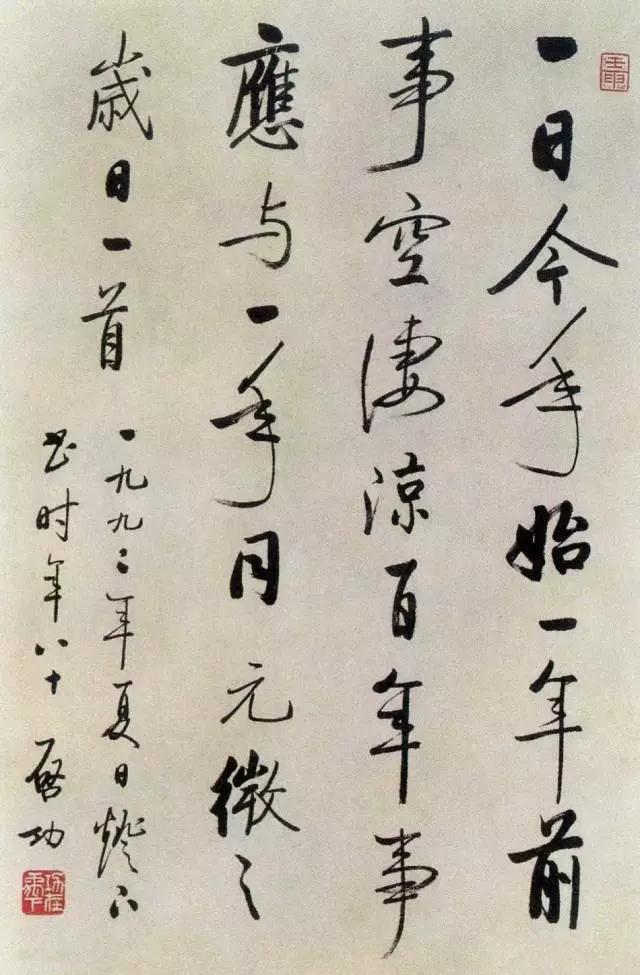 一日今年始一年前
事空淒涼百年事
應与一年同元微之
歲日一首
一九九二年夏日燈下
书时年八十 啟功